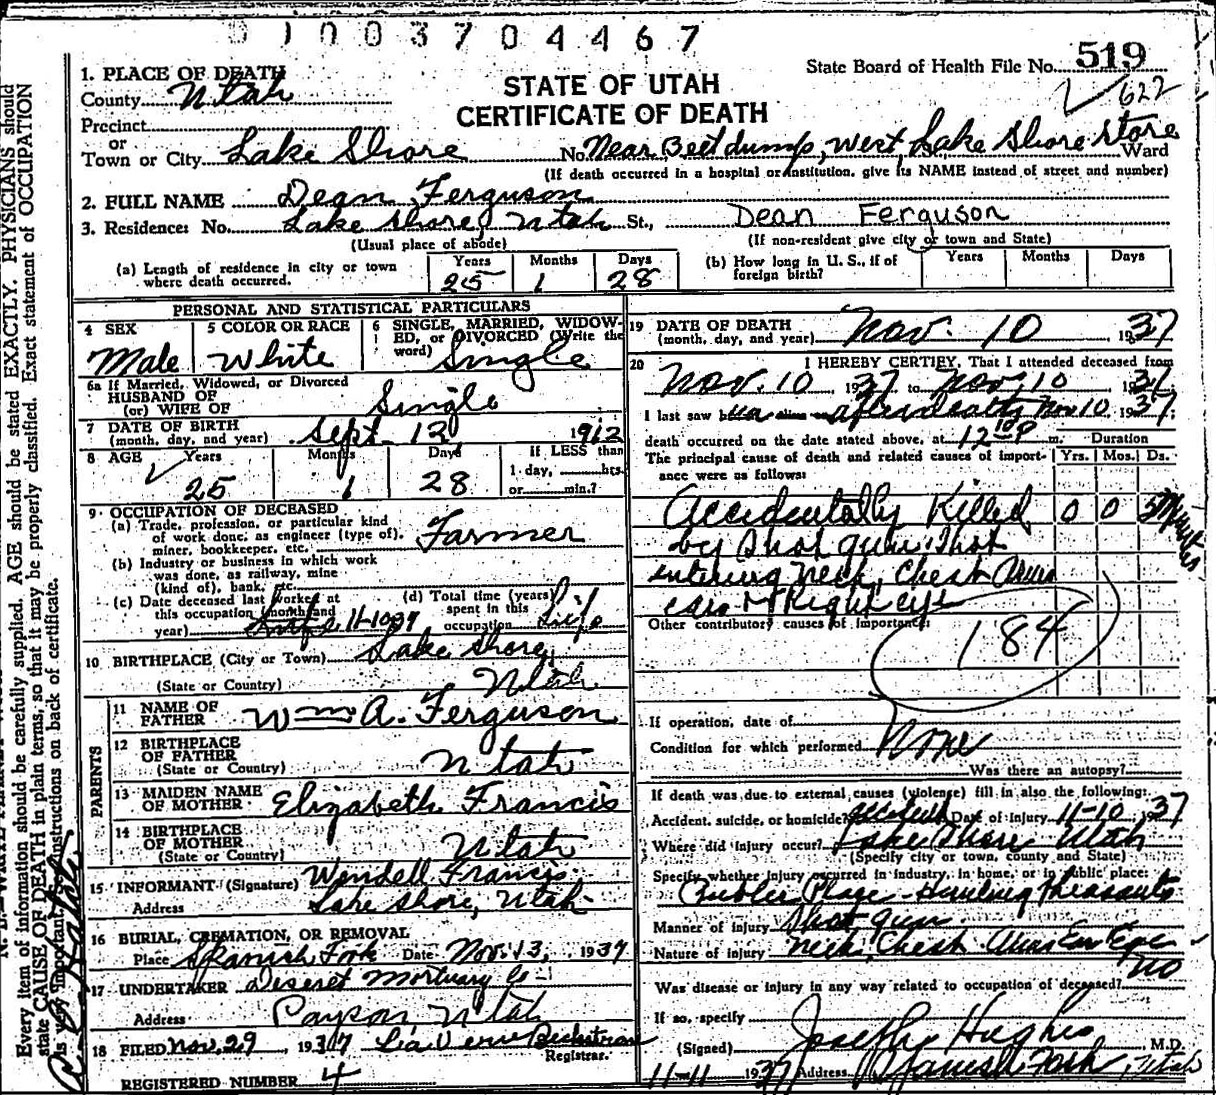 D 1 0 0 3 7 0 4 4 6 7
State Board of Health File No. 519
622
STATE OF UTAH
CERTIFICATE OF DEATH
1. PLACE OF DEATH
County Utah
Precinct
or
Town or City Lake Shore No. Near Beet dump, West, Lake Shore Store Ward
(If death occurred in a hospital or institution, give its NAME instead of street and number)
2. FULL NAME Dean Ferguson
3. Residence: No. Lake Shore, Utah St., Dean Ferguson
(Usual place of abode) (If non-resident give city or town and State)
(a) Length of residence in city or town where death occurred. Years 25 Months 1 Days 28
(b) How long in U. S., if of foreign birth? Years Months Days
PERSONAL AND STATISTICAL PARTICULARS
4 SEX Male
5 COLOR OR RACE White
6 SINGLE, MARRIED, WIDOWED, or DIVORCED (Write the word) Single
6a If Married, Widowed, or Divorced
HUSBAND OF
(or) WIFE OF Single
7 DATE OF BIRTH
(month, day, and year) Sept. 12 1912
8 AGE Years 25 Months 1 Days 28 If LESS than
1 day, hrs.
or min.?
9 OCCUPATION OF DECEASED
(a) Trade, profession, or particular kind
of work done, as engineer (type of),
miner, bookkeeper, etc. Farmer
(b) Industry or business in which work
was done, as railway, mine
(kind of), bank, etc.
(c) Date deceased last worked at
this occupation (month and
year) 11-10-37
(d) Total time (years)
spent in this
occupation Life
10 BIRTHPLACE (City or Town) Lake Shore,
(State or Country) Utah
PARENTS
11 NAME OF
FATHER Wm A. Ferguson
12 BIRTHPLACE
OF FATHER
(State or Country) Utah
13 MAIDEN NAME
OF MOTHER Elizabeth Francis
14 BIRTHPLACE
OF MOTHER
(State or Country) Utah
15 INFORMANT (Signature) Wendell Francis
Address Lake Shore, Utah
16 BURIAL, CREMATION, OR REMOVAL
Place Spanish Fork Date Nov. 13, 1937
17 UNDERTAKER Deseret Mortuary Co
Address Payson Utah
18 FILED Nov. 29, 1937 LaVerne Beckstrom
Registrar.
REGISTERED NUMBER 4
19 DATE OF DEATH
(month, day, and year) Nov. 10 1937
20 I HEREBY CERTIFY, That I attended deceased from
Nov. 10 1937 to Nov. 10 1937
I last saw after death Nov 10, 1937;
death occurred on the date stated above, at 12 10 P m. Duration
The principal cause of death and related causes of importance were as follows: Yrs. Mos. Ds.
Accidentally Killed 0 0 5 Minutes
by Shot gun Shot
entering Neck, Chest Arms
ears & Right eye
Other contributory causes of importance:
184
If operation, date of
Condition for which performed None
Was there an autopsy?
If death was due to external causes (violence) fill in also the following:
Accident, suicide, or homicide? Accident Date of injury 11-10, 1937
Where did injury occur? Lake Shore Utah
(Specify city or town, county and State)
Specify whether injury occurred in industry, in home, or in public place:
Public Place - Hunting Pheasants
Manner of injury Shot gun
Nature of injury Neck, Chest Arms Ear Eye
Was disease or injury in any way related to occupation of deceased? no
If so, specify
(Signed) Joseph Hughes M.D.
11-11 1937 Address Spanish Fork, Utah
Every item of information should be carefully supplied. AGE should be stated EXACTLY. PHYSICIANS should
state CAUSE OF DEATH in plain terms, so that it may be properly classified. Exact statement of OCCUPATION
is very important. instructions on back of certificate.